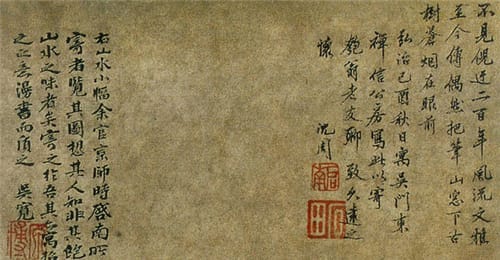 不見倪迂二百年風流文雅
至今傳偶然把筆山窓下古
樹蒼烟在眼前
弘治己酉秋日寓吴門東
禪信公房寫此以寄
匏翁老友聊致久遠之
懷 沈周
啓南
右山水小幅余官京師時啓南所
寄者覽其圖想其人如非其飽
山水之味者矣寄之作吾其
之 得書而 之 吴寬